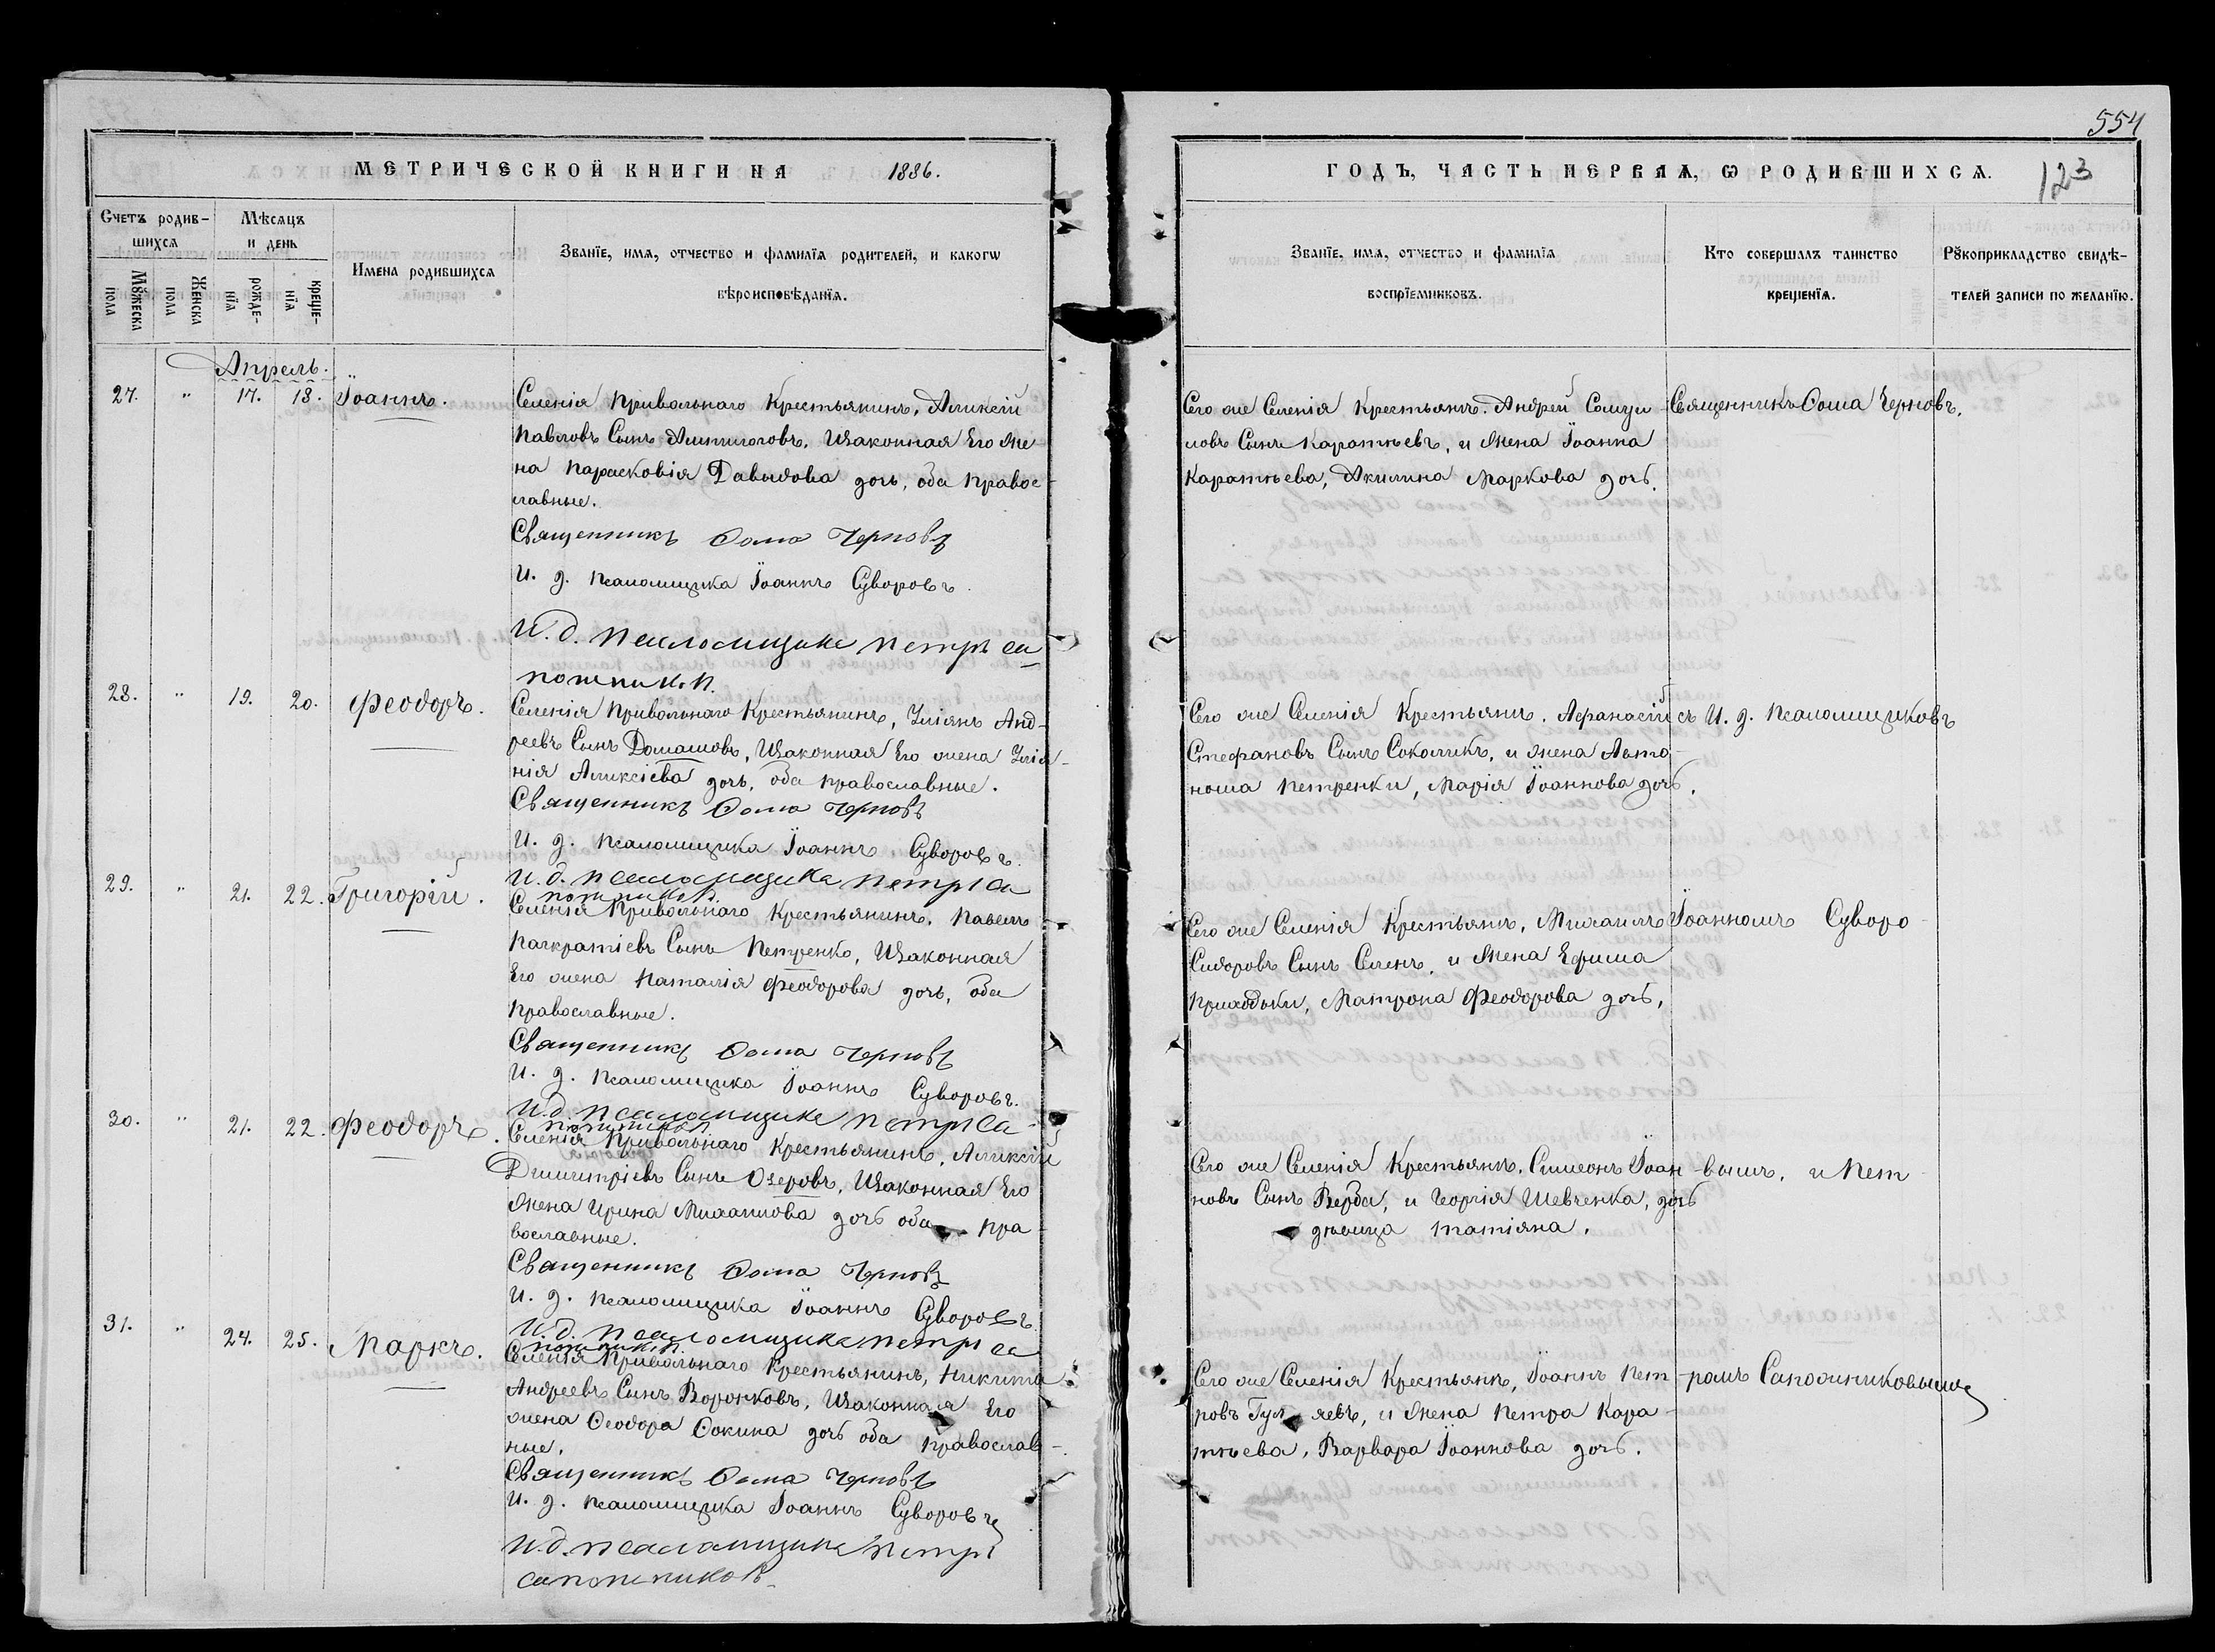 554
123
МЕТРИЧЕСКОЙ КНИГИ НА 1886.
ГОДЪ, ЧАСТЬ ПЕРВАѦ, Ѡ РОДИВШИХСѦ.
Счетъ родив-
шихсѧ
Мѣсѧцъ
и день
Мȣжеска
пола
Женска
пола
рожде-
нїѧ
креще-
нїѧ
Имена родившихсѧ
Званїе, имѧ, отчество и фамилїѧ родителей, и какогѡ
вѣроисповѣданїѧ.
Званїе, имѧ, отчество и фамилїѧ
воспрїемниковъ.
Кто совершалъ таинство
крещенїѧ.
Рȣкоприкладство свидѣ-
телей записи по желанїю.
Апрель.
27. " 17. 18. Іоаннъ.
Селенія Привольнаго Крестьянинъ, Аликсій
Павловъ Сынъ, Изаконная Его Же
на Парасковія Давыдова дочь, оба правос-
лавные.
Священникъ Ѳома Черновъ
И. д. Псаломщика Іоаннъ Суворовъ.
И. д. Псаломщика Петръ Са-
пожников.
Сего же Селенія Крестьянъ. Андрей Самуи-
ловъ Сынъ Каратѣевъ, и Жена Іоанна
Каратѣева, Акилина Маркова дочь.
Священникъ Ѳома Черновъ.
28. " 19. 20. Феодоръ.
Селенія Привольнаго Крестьянинъ, Уліянъ Анд-
реевъ Сынъ Домашовъ, Изаконная Его жена Улія-
нія Аликсіева дочь, оба православные.
Священникъ Ѳома Черновъ
И. д. Псаломщика Іоаннъ Суворовъ.
И. д. Псаломщика Петръ Са
пожников.
Сего же Селенія Крестьянъ. Афанасій
Стефановъ Сынъ Соколикъ, и жена Авто-
нома Петренки, Марія Іоаннова дочь.
съ И. д. Псаломщиковъ
29. " 21. 22. Григорій.
Селенія Привольнаго Крестьянинъ, Павелъ
Панкратіевъ Сынъ Петренко, Изаконная
Его жена Наталія Феодорова дочь, оба
православные.
Священникъ Ѳома Черновъ
И. д. Псаломщика Іоаннъ Суворовъ.
И. д. Псаломщика Петръ Са-
пожников.
Сего же Селенія Крестьянъ, Михаилъ
Сидоровъ Сынъ Селенъ, и Жена Ефима
Приходьки, Матрона Феодорова дочь,
Іоанномъ Суворо-
30. " 21. 22. Феодоръ.
Селенія Привольнаго Крестьянинъ, Аликсій
Димитріевъ Сынъ Озеровъ, Изаконная Его
Жена Ирина Михаилова дочь оба пра-
вославные.
Священникъ Ѳома Черновъ
И. д. Псаломщика Іоаннъ Суворовъ.
И. д. Псаломщика Петръ Са
пожников.
Сего же Селенія Крестьянъ, Симеонъ Іоан-
новъ Сынъ Верба, и Георгія Шевченка, дочь
дѣвица Татіяна.
вымъ, и Пет-
31. " 24. 25. Маркъ.
Селенія Привольнаго Крестьянинъ, Никита
Андреевъ Сынъ Воронковъ, Изаконная Его
жена Ѳеодора Ѳокина дочь оба православ-
ные.
Священникъ Ѳома Черновъ
И. д. Псаломщика Іоаннъ Суворовъ
И. д. Псаломщика Петръ
Сапожниковъ
Сего же Селенія Крестьянъ, Іоаннъ Пет-
ровъ Гуляевъ, и Жена Петра Кара-
тѣева, Варвара Іоаннова дочь.
ромъ Сапожниковымъ